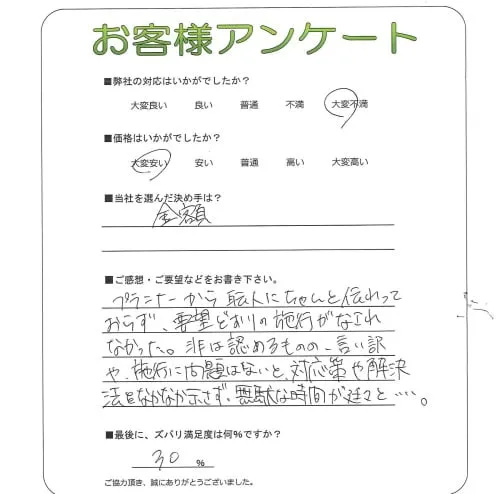 お客様アンケート
■弊社の対応はいかがでしたか？
大変良い　良い　普通　不満　大変不満
■価格はいかがでしたか？
大変安い　安い　普通　高い　大変高い
■当社を選んだ決め手は？
金額
■ご感想・ご要望などをお書き下さい。
プランナーから職人にちゃんと伝わって
おらず、要望どおりの施行がなされ
なかった。非は認めるものの、言い訳
や、施行に問題はないと、対応策や解決
法はなかなか示さず、無駄な時間が延々と…。
■最後に、ズバリ満足度は何%ですか？
30 %
ご協力頂き、誠にありがとうございました。